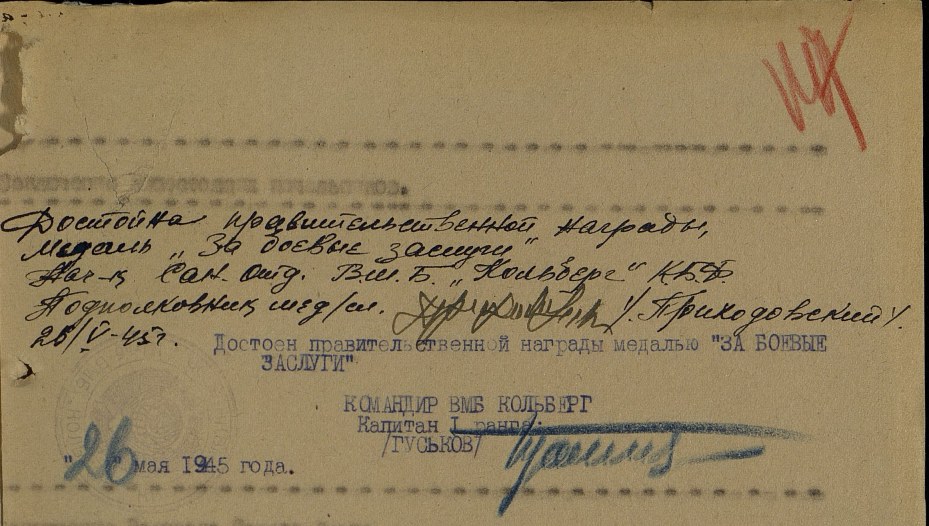 Достойна правительственной награды,
медаль „За боевые заслуги"
Нач-к Сан. отд. В.М.Б. „Кольберг" К.Б.Ф.
Подполковник мед/сл. /. Приходовский /.
26/V-45г.
Достоен правительственной награды медалью "ЗА БОЕВЫЕ
ЗАСЛУГИ"
КОМАНДИР ВМБ КОЛЬБЕРГ
Капитан I ранга:
/ГУСЬКОВ/
"26" мая 1945 года.